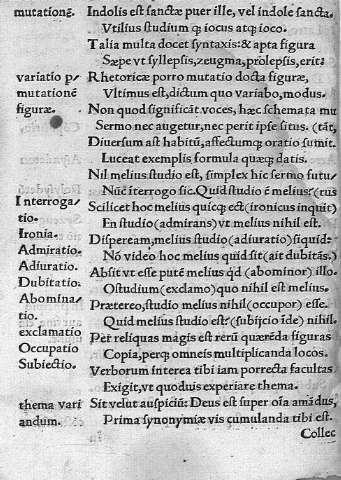 mutationē. Indolis est sanctæ puer ille, vel indole sancta.
Vtilius studium ꝗ iocus atꝗ ioco.
Talia multa docet syntaxis: & apta figura
Sæpe vt syllepsis, zeugma, prolepsis, erit:
variatio ꝑ Rhetoricæ porro mutatio docta figuræ,
mutationē Vltimus est, dictum quo variabo, modus.
figuræ. Non quod significāt voces, hæc schemata mu
Sermo nec augetur, nec perit ipse situs. (tāt,
Diuersum ast habitū, affectumꝗ oratio sumit.
Luceat exemplis formula quæꝗ datis.
Nil melius studio est, simplex hic sermo futu/
Nūc iterrogo sic. Quid studio ē melius? (rus
Interroga/
tio. Scilicet hoc melius quicꝗ est (ironicus inquit)
En studio (admirans) vt melius nihil est.
Ironia. Dispeream, melius studio (adiuratio) siquid:
Admiratio. Nō video hoc melius quid sit (ait dubitās.)
Adiuratio. Absit vt esse putē melius ꝗd (abominor) illo.
Dubitatio: O studium (exclamo) quo nihil est melius.
Abomina/ Prætereo, studio melius nihil (occupor) esse.
tio. Quid melius studio est? (subijcio īde) nihil.
exclamatio Per reliquas magis est rerū quærēda figuras
Occupatio Copia, perꝗ omneis multiplicanda locos.
Subiectio. Verborum interea tibi iam porrecta facultas
Exigit, vt quoduis experiare thema.
thema vari Sit velut auspiciū: Deus est super oīa amādus,
andum. Prima synonymiæ vis cumulanda tibi est.
Collec